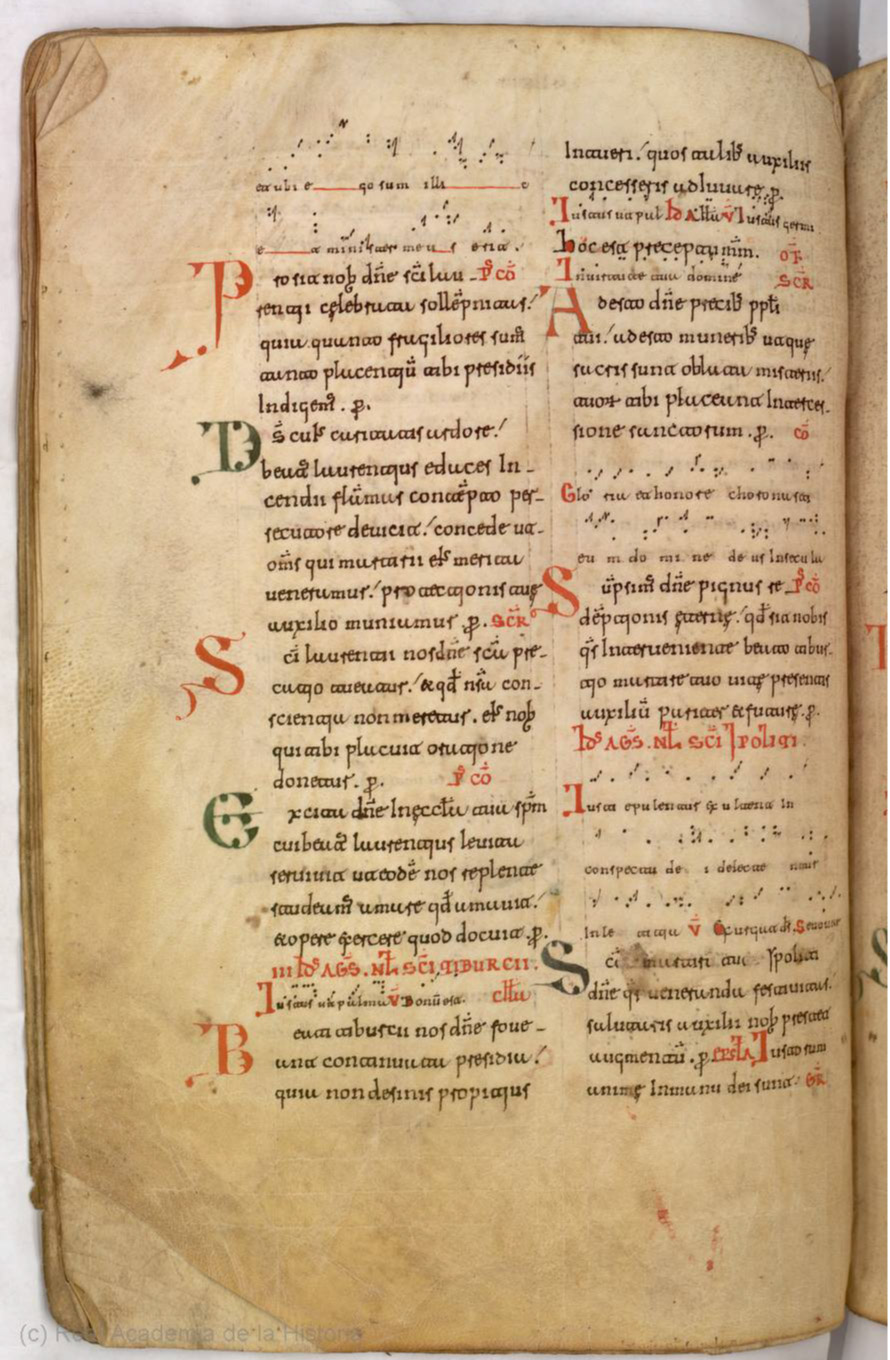 et ubi e go sum illi c
e t minister me us erit.
Prosit nob dñe sc̄i lau PS CO
renti celebrata sollēpnitas
quia quanto fragiliores sum̄
tanto placentiū tibi presidiis
Indigem̄. p.
Ds̄ cuiȝ caritatis ardore
beat̄ laurentius edaces In-
cendii flāmas contēpto per-
secutore devicit concede ut
om̄s qui martirii eiȝ merita
veneramur protectionis tue
auxilio muniamur p. SCR
Sc̄i laurenti nos dñe sc̄a pre-
catio tueatur et qđ nr̄a con-
scientia non meretur. eiȝ nob
qui tibi placuit oratione
donetur. p. PS CO
Excita dñe In eccła tua spm
cui beat̄ laurentius levita
servivit ut eodē nos repleti
studeam̄ amare qđ amavit
et opere exercere quod docuit. p.
IIII IDS AGS. NL SC̄I TIBURCII.
Iustus ut palma V̄ Bonū est.
Beati tiburcii nos dñe fove-
ant continuata presidia
quia non desinis propitius
Intueri quos talib auxiliis
concesseris adiuvare. p.
Iustus ut pal V̄ Iustus germi
hoc est preceptum. OF
In virtute tua domine SCR
Adesto dñe precib ppli
tui adesto munerib ut que
sacris sunt oblata misteriis
tuor tibi placeant Interces-
sione sanctorum. p. cō
Glo ria et honore choronasti
eu m do mi ne de us In secula
Sūpsim̄ dñe pignus re PS CO
dēptionis eterne qđ sit nobis
qs̄ Interveniente beato tibur-
tio martire tuo vite presentis
auxiliū pariter et future. p.
IDS AGS. NL SC̄I IPOLITI
Iusti epulentur exultent In
conspectu de i delecte ntur
In le titia V̄ Exurgat ds.
Sc̄i martiri tui Ipoliti
dñe qs̄ veneranda festivitas
salutaris auxilii nob prestet
augmentū. p. EPSTLA Iustorum
anime In manu dei sunt. GR
(c) Real Academia de la Historia